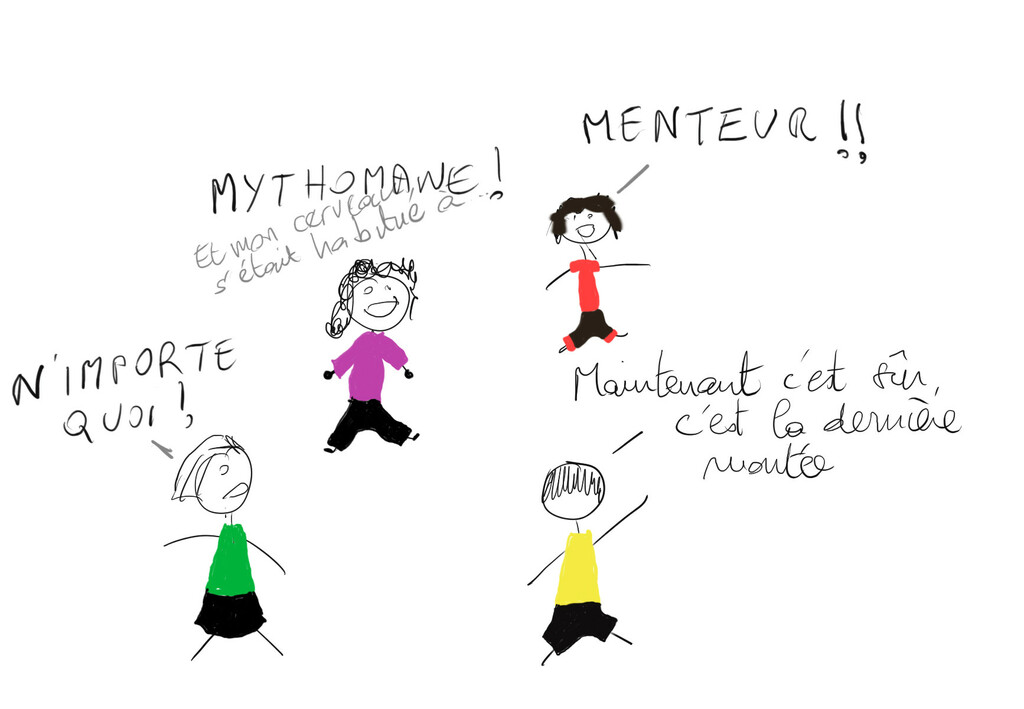 MENTEUR !!
MYTHOMANE !
Et mon cerveau,
s'était habitué à...
N'IMPORTE
QUOI !
Maintenant c'est sûr,
c'est la dernière
montée